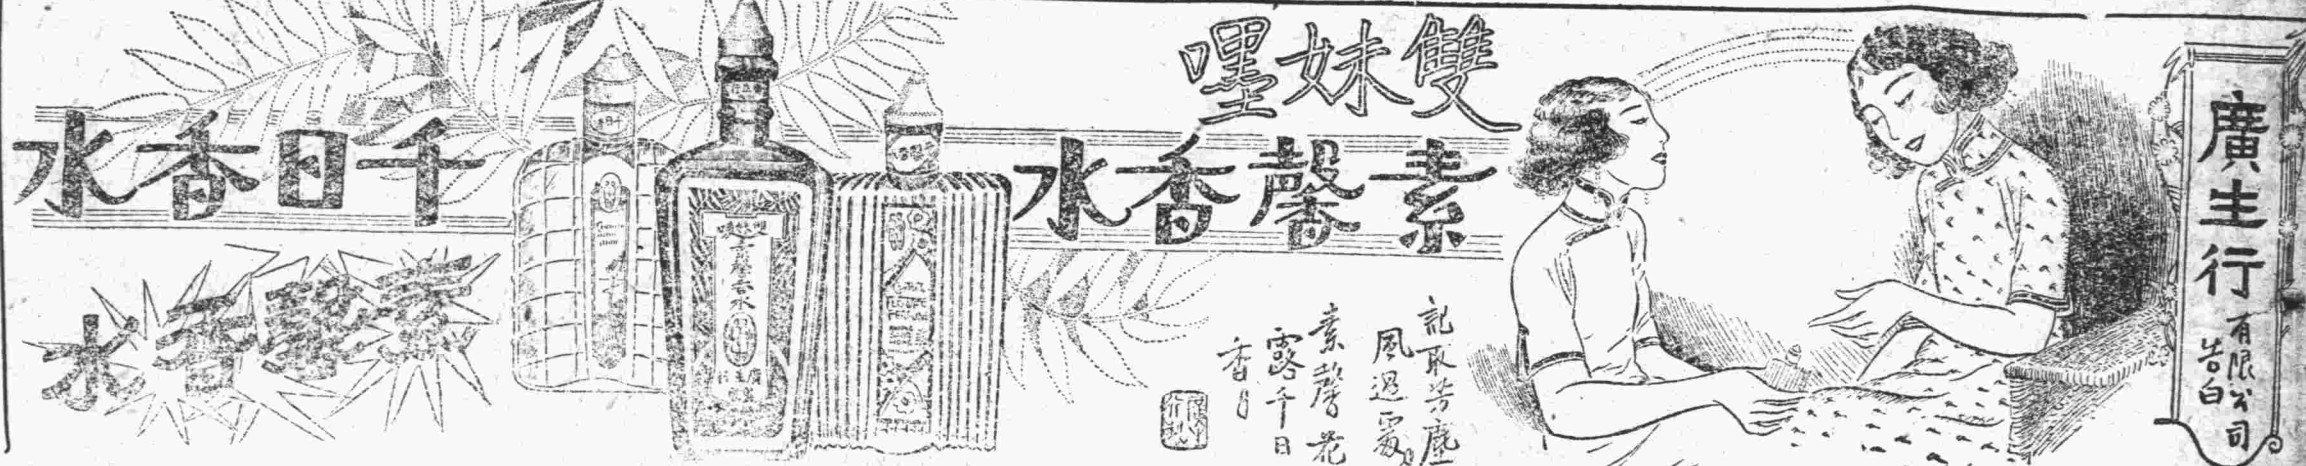 廣生行
有限公司
告白
雙妹嚜
素馨香水
記取芳塵
風過處
素馨花
露千日
香
千日香水
素馨香水
素馨香水